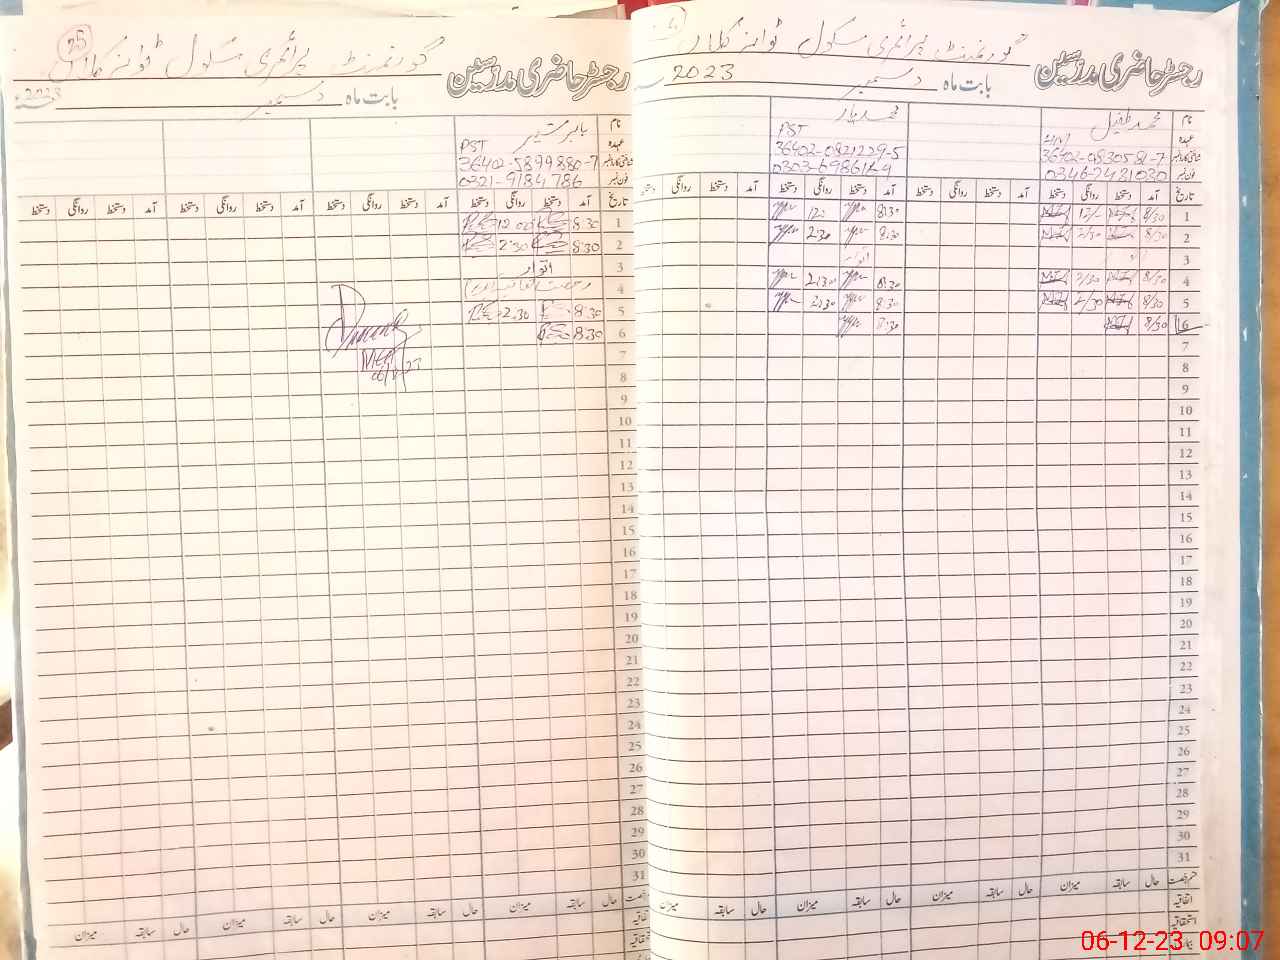 گورنمنٹ پرائمری سکول ٹوانز کلار
رجسٹر حاضری مدرسین
بابت ماہ دسمبر 2023
نام محمد طفیل
عہدہ
شناختی کارڈ نمبر 36402-0830581-7
فون نمبر 0346-7481030
محمد یار
PST
36402-0821229-5
تاریخ آمد دستخط روانگی دستخط آمد دستخط روانگی دستخط آمد دستخط روانگی دستخط آمد دستخط
1 8/30 8:30
2 8/30 2/30 8:30 2:30
3 اتوار
4 8/30 2/30 8:30 2:30
5 8/30 2/30 8:30 2:30
6 8/30 8:30
7
8
9
10
11
12
13
14
15
16
17
18
19
20
21
22
23
24
25
26
27
28
29
30
31
حال سابقہ میزان حال سابقہ میزان حال سابقہ میزان
اتفاقیہ
استحقاقیہ
25
گورنمنٹ پرائمری سکول ٹوانز کلار
رجسٹر حاضری مدرسین
بابت ماہ دسمبر 2023
نام بابر شبیر
عہدہ PST
36402-5899880-7
فون نمبر 0321-9184786
تاریخ آمد دستخط روانگی دستخط آمد دستخط روانگی دستخط آمد دستخط روانگی دستخط آمد دستخط روانگی دستخط
1 8:30 12:00
2 8:30 2:30
3 اتوار
4 رخصت اتفاقیہ
5 8:30 2:30
6 8:30
7
8
9
10
11
12
13
14
15
16
17
18
19
20
21
22
23
24
25
26
27
28
29
30
31
حال سابقہ میزان حال سابقہ میزان حال سابقہ میزان حال سابقہ میزان
06-12-23 09:07